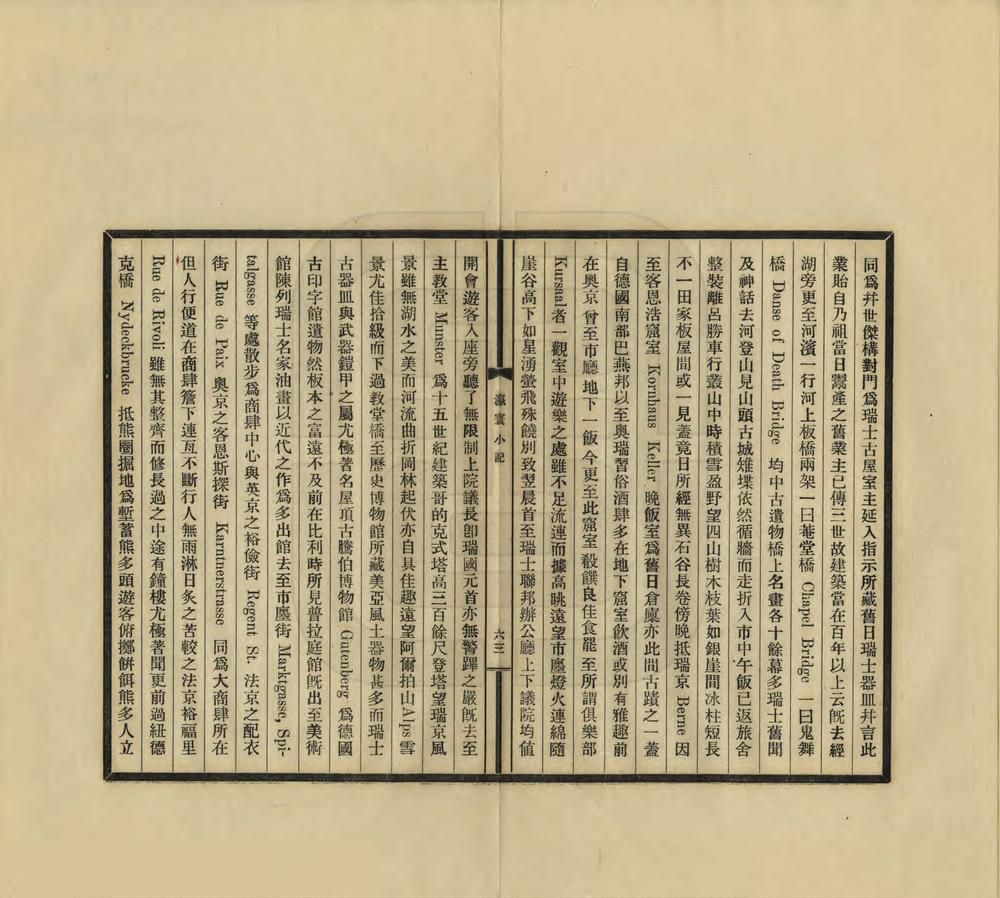 同爲幷世傑構對門爲瑞士古屋室主延入指示所藏舊日瑞士器皿幷言此
業貽自乃祖當日鬻產之舊業主已傳三世故建築當在百年以上云旣去經
湖旁更至河濱一行河上板橋兩架一曰菴堂橋 Chapel Bridge 一曰鬼舞
橋 Danse of Death Bridge 均中古遺物橋上名畫各十餘幕多瑞士舊聞
及神話去河登山見山頭古城雉堞依然循牆而走折入市中午飯已返旅舍
整裝離呂勝車行叢山中時積雪盈野望四山樹木枝葉如銀崖間冰柱短長
不一田家板屋間或一見蓋竟日所經無異石谷長卷傍晚抵瑞京 Berne 因
至客恩浩窟室 Kornhaus Keller 晚飯室爲舊日倉廩亦此間古蹟之一蓋
自德國南部巴燕邦以至奧瑞習俗酒肆多在地下窟室飲酒或別有雅趣前
在奧京曾至市廳地下一飯今更至此窟室殽饌良佳食罷至所謂俱樂部
Kursaal者一觀室中遊樂之處雖不足流連而據高眺遠望市廛燈火連綿隨
崖谷高下如星湧螢飛殊饒別致翌晨首至瑞士聯邦辦公廳上下議院均値
瀛寰小記
六三
開會遊客入座旁聽了無限制上院議長卽瑞國元首亦無警蹕之嚴旣去至
主教堂 Munster 爲十五世紀建築哥的克式塔高三百餘尺登塔望瑞京風
景雖無湖水之美而河流曲折岡林起伏亦自具佳趣遠望阿爾拍山Alps雪
景尤佳拾級而下過敎堂橋至歷史博物館所藏美亞風土器物甚多而瑞士
古器皿與武器鎧甲之屬尤極著名屋項古騰伯博物館 Gutenberg 爲德國
古印字館遺物然板本之富遠不及前在比利時所見普拉庭館旣出至美術
館陳列瑞士名家油畫以近代之作爲多出館去至市廛街 Marktgasse, Spi-
talgasse 等處散步爲商肆中心與英京之裕儉街 Regent St. 法京之配衣
街 Rue de Paix 奧京之客恩斯探街 Karntnerstrasse 同爲大商肆所在
但人行便道在商肆簷下連亙不斷行人無雨淋日炙之苦較之法京裕福里
Rue de Rivoli 雖無其整齊而修長過之中途有鐘樓尤極著聞更前過紐德
克橋 Nydeckbrucke 抵熊圈掘地爲塹蓄熊多頭遊客俯擲餅餌熊多人立